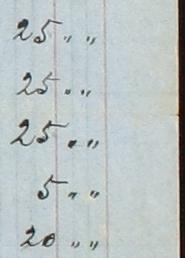 25 " "
25 " "
25 " "
5 " "
20 " "